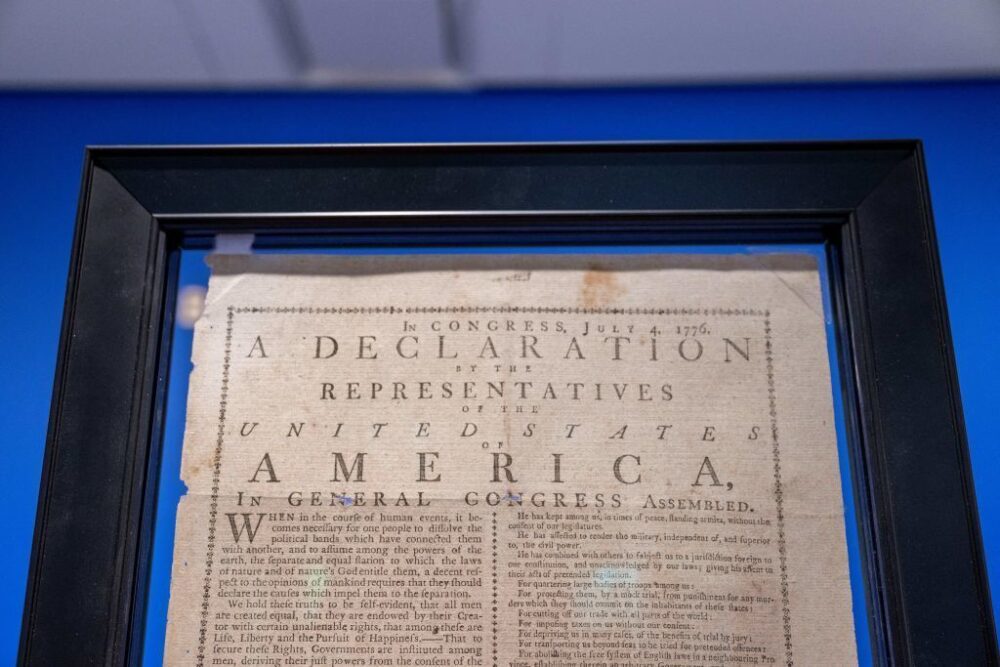 In CONGRESS, July 4, 1776.
A DECLARATION
BY THE
REPRESENTATIVES
OF THE
UNITED STATES
OF
AMERICA,
In GENERAL CONGRESS Assembled.
WHEN in the courſe of human events, it be-
comes neceſſary for one people to diſſolve the
political bands which have connected them
with another, and to aſſume among the powers of the
earth, the ſeparate and equal ſtation to which the laws
of nature and of nature's God entitle them, a decent reſ-
pect to the opinions of mankind requires that they ſhould
declare the cauſes which impel them to the ſeparation.
We hold theſe truths to be ſelf-evident, that all men
are created equal, that they are endowed by their Crea-
tor with certain unalienable rights, that among theſe are
Life, Liberty and the Purſuit of Happineſs.——That to
ſecure theſe Rights, Governments are inſtituted among
men, deriving their juſt powers from the conſent of the
He has kept among us, in times of peace, ſtanding armies, without the
conſent of our legiſlatures.
He has affected to render the military, independent of, and ſuperior
to, the civil power.
He has combined with others to ſubject us to a juriſdiction foreign to
our conſtitution, and unacknowledged by our laws; giving his aſſent to
their acts of pretended legiſlation.
For quartering large bodies of troops among us:
For protecting them, by a mock trial, from puniſhment for any mur-
ders which they ſhould commit on the inhabitants of theſe ſtates:
For cutting off our trade with all parts of the world:
For impoſing taxes on us without our conſent:
For depriving us in many caſes, of the benefits of trial by jury;
For tranſporting us beyond ſeas to be tried for pretended offences:
For aboliſhing the free ſyſtem of Engliſh laws in a neighbouring Pro
vince, eſtabliſhing therein an arbitrary Government